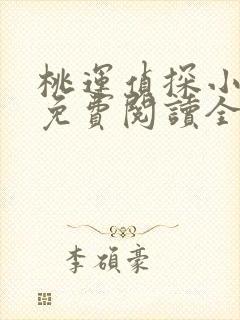 桃運偵探小
免費閱讀全
李碩豪